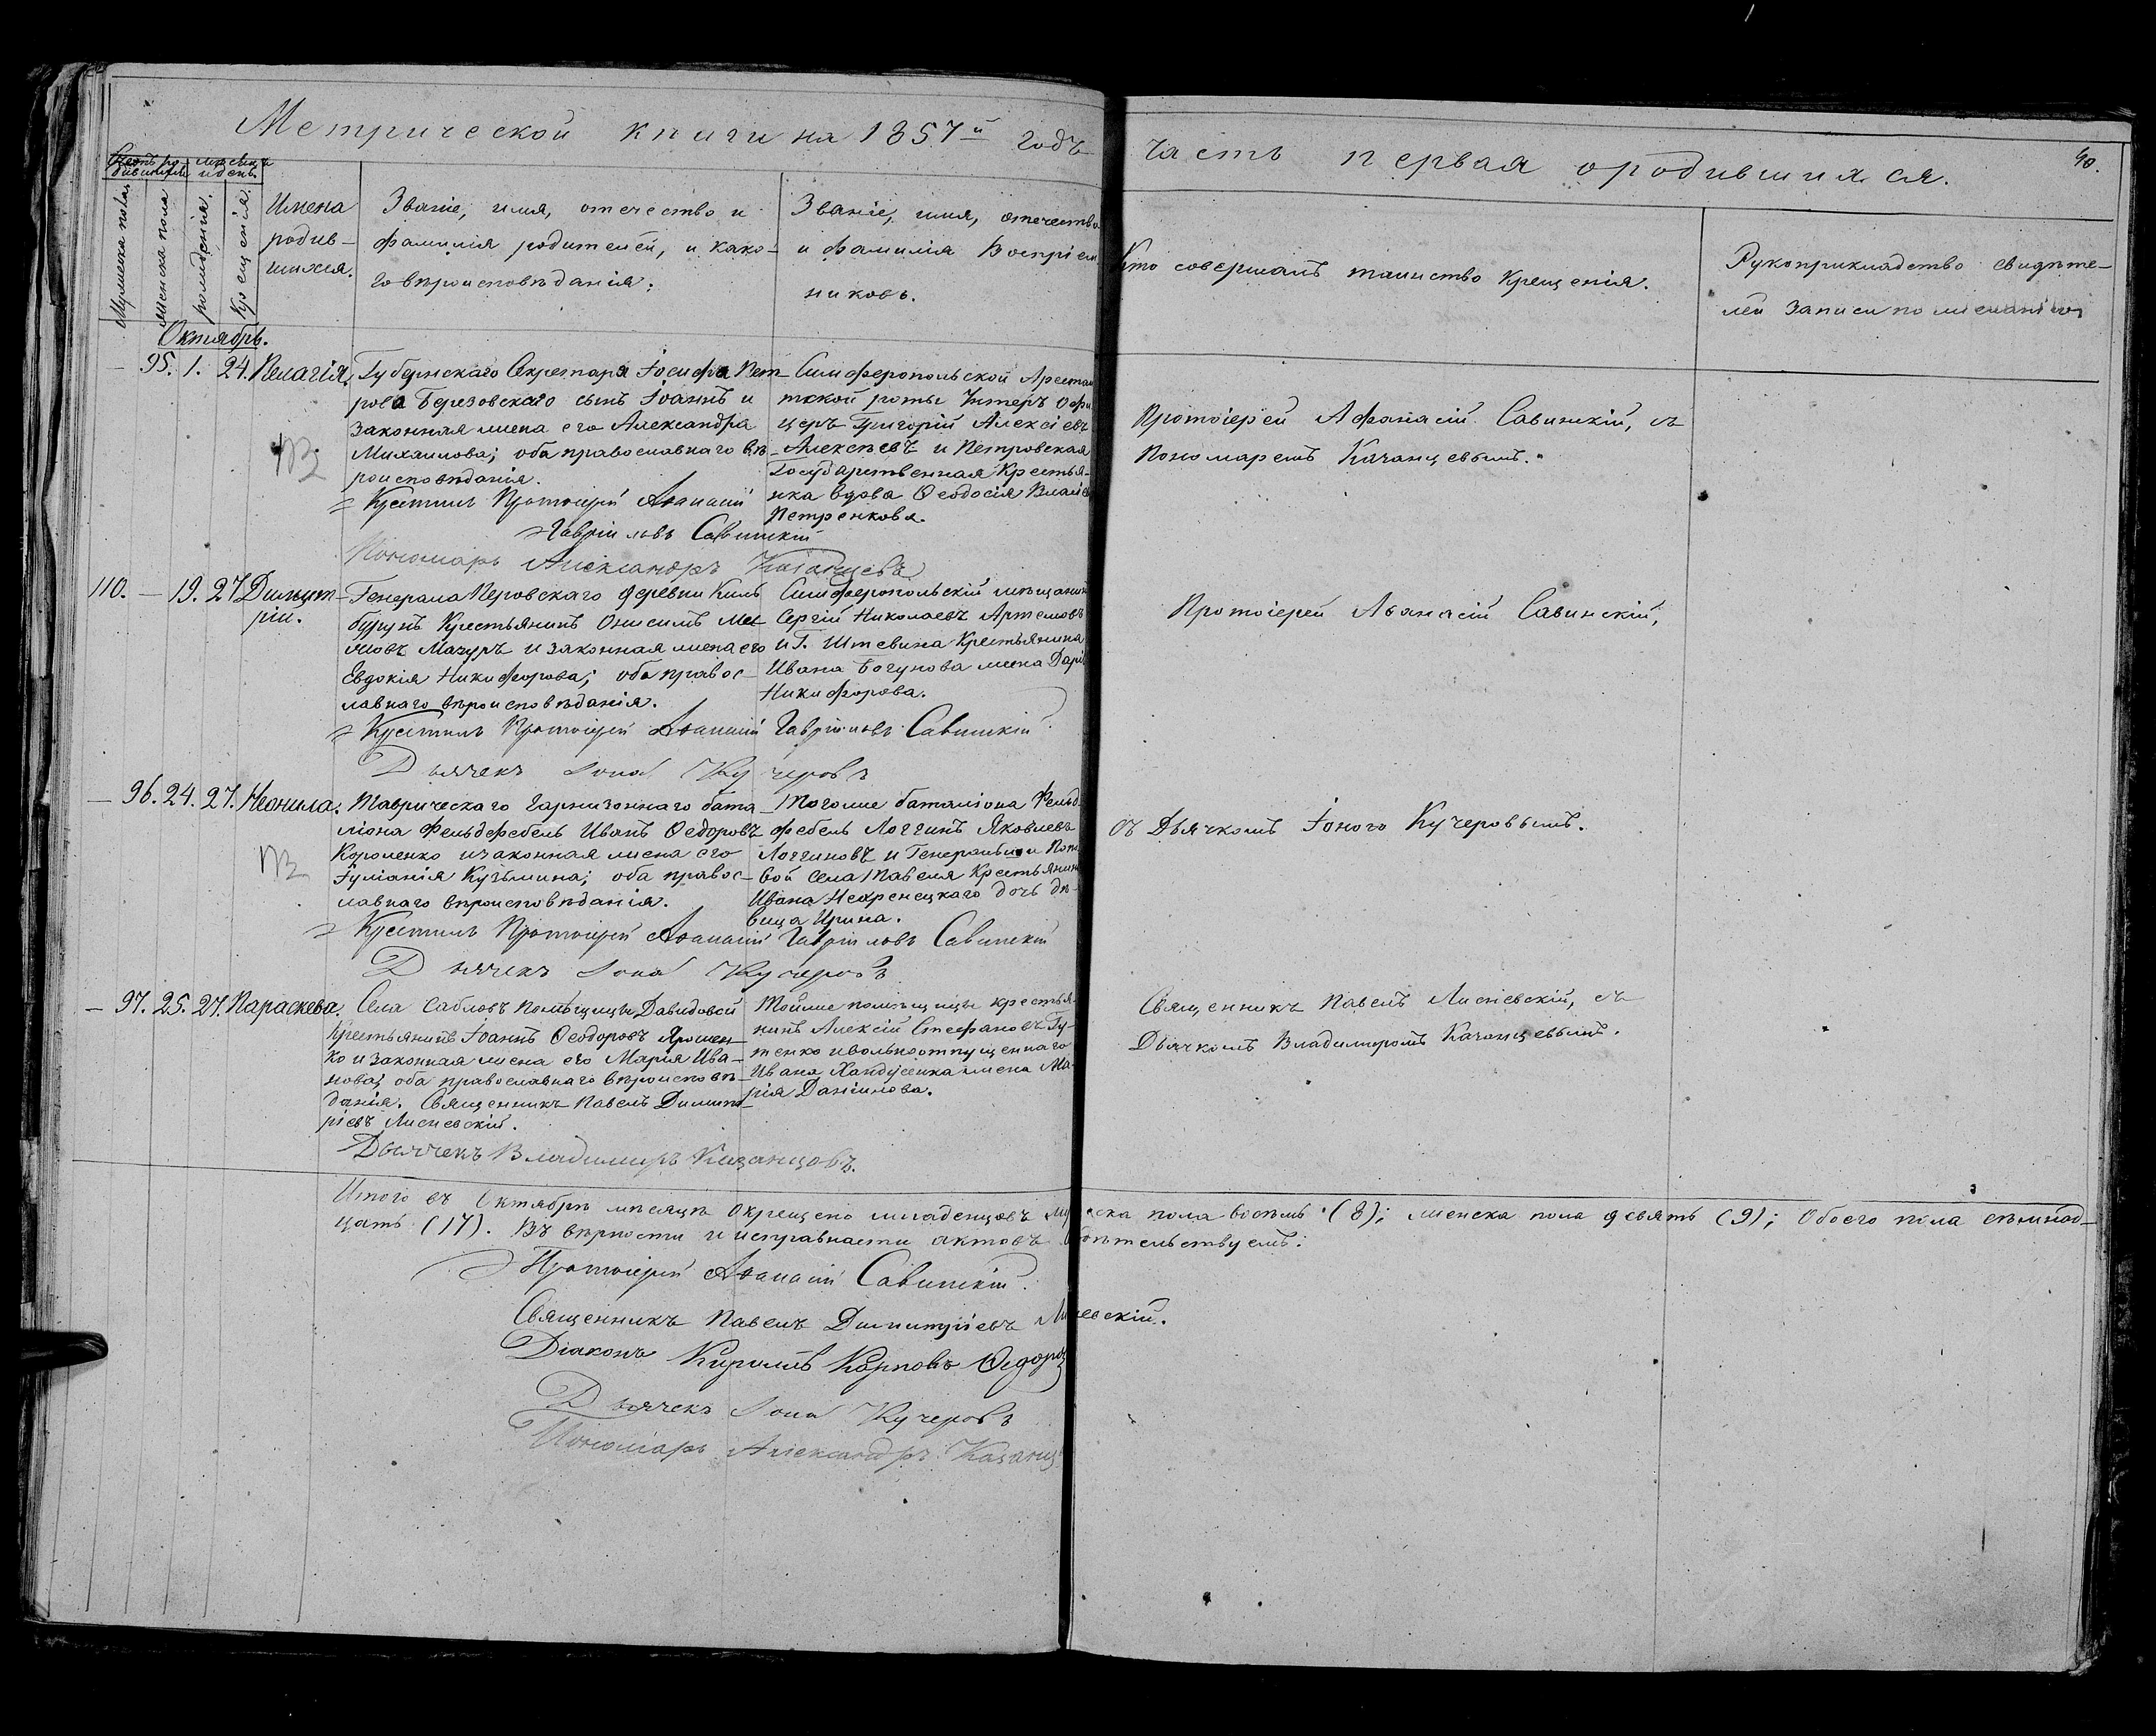 Метрической книги на 1857й годъ
часть первая о родившихся.
40.
Счетъ ро-
дившихся
мѣсяцъ
и день.
Мужеска пола
Женска пола
рожденія.
Крещенія.
Имена
родив-
шихся.
Званіе, имя, отечество и
фамилія родителей, и како-
го вѣроисповѣданія.
Званіе, имя, отечество
и фамилія Воспріем
никовъ.
Кто совершалъ таинство Крещенія.
Рукоприкладство свидѣте-
лей записи по желанію
Октябрь.
— 95. 1. 24. Пелагія.
Губернскаго Секретаря Іосифа Пет-
рова Березовскаго сынъ Іоаннъ и
законная жена его Александра
Михаилова; оба православнаго вѣ-
роисповѣданія.
Крестилъ Протоіерей Аѳанасій
Гавріиловъ Савинскій
Пономарь Александръ Казанцевъ
Симферопольской Арестан
тской роты Унтеръ Офи
церъ Григорій Алексіевъ
Алексѣевъ и Петровская
Государственная Крестья-
нка вдова Ѳеодосія
Петренкова.
Протоіерей Афанасій Савинскій, съ
Пономаремъ Качанцевымъ.
110. — 19. 27. Димит-
рій.
Генерала Перовскаго деревни Киль
бурунъ Крестьянинъ Онисимъ
Мазуръ и законная жена его
Евдокія Никифорова; оба правос-
лавнаго вѣроисповѣданія.
Крестилъ Протоіерей Аѳанасій Гавріиловъ Савинскій
Дьячекъ Іона Кучеровъ
Симферопольскій мѣщанинъ
Сергій Николаевъ Артемовъ
и Г. Штевина Крестьянина
Ивана Богунова жена Дарія
Никифорова.
Протоіерей Аѳанасій Савинскій,
— 96. 24. 27. Неонила.
Таврическаго гарнизоннаго бата-
ліона Фельдфебель Иванъ Ѳедоровъ
Короленко и законная жена его
Іуліанія Кузьмина; оба правос-
лавнаго вѣроисповѣданія.
Крестилъ Протоіерей Аѳанасій Гавріиловъ Савинскій
Дьячекъ Іона Кучеровъ
Тогоже баталіона Фельд-
фебель Логгинъ Яковлевъ
Логгиновъ и Генеральши Попо
вой села Тавеля Крестьянина
Ивана дочь дѣ-
вица Ирина.
съ Дьячкомъ Іоною Кучеровымъ.
— 97. 25. 27. Параскева.
Села Сабловъ Помѣщицы Давидовой
Крестьянинъ Іоаннъ Ѳеодоровъ Ярошен-
ко и законная жена его Марія Ива-
нова; оба православнаго вѣроисповѣ-
данія. Священникъ Павелъ Димит-
ріевъ Лисневскій.
Дьячекъ Владимиръ Казанцовъ.
Тойже помѣщицы крестья-
нинъ Алексій Стефановъ Гу-
тенко и вольноотпущеннаго
Ивана жена Ма-
рія Даніилова.
Священникъ Павелъ Лисневскій, съ
Дьячкомъ Владимиромъ Качанцевымъ.
Итого въ Октябрѣ мѣсяцѣ окрещено младенцовъ мужеска пола восемь (8); женска пола девять (9); Обоего пола семнад-
цать (17). Въ вѣрности и исправности актовъ свидѣтельствуемъ:
Протоіерей Аѳанасій Савинскій.
Священникъ Павелъ Димитріевъ Лисневскій.
Діаконъ Кириллъ Карповъ
Дьячекъ Іона Кучеровъ
Пономарь Александръ Казанц